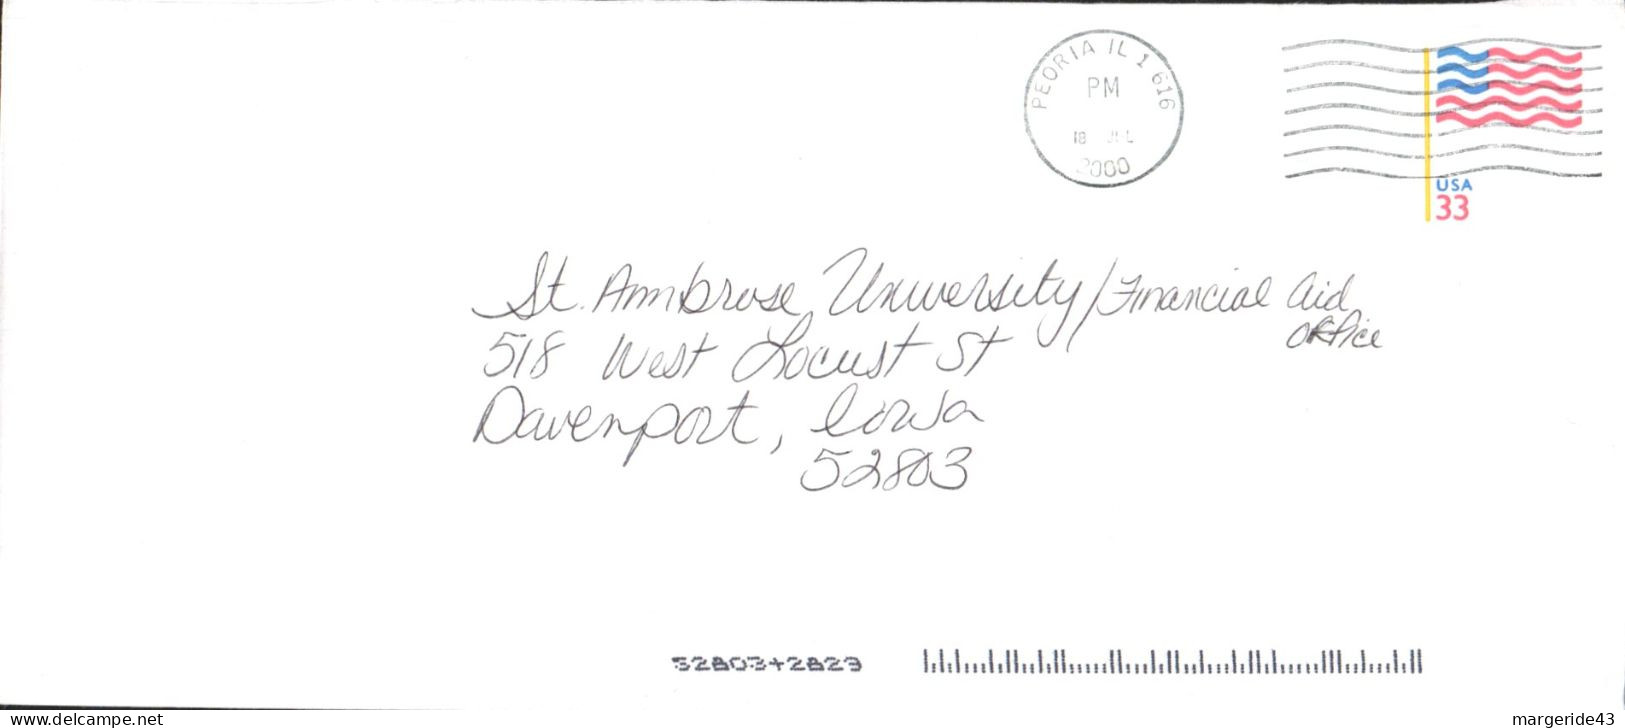 PEORIA IL 1 616
PM
18 JUL
2000
USA
33
St. Ambrose University/Financial Aid
Office
518 West Locust St
Davenport, Iowa
52803
52803+2823
www.delcampe.net
margeride43